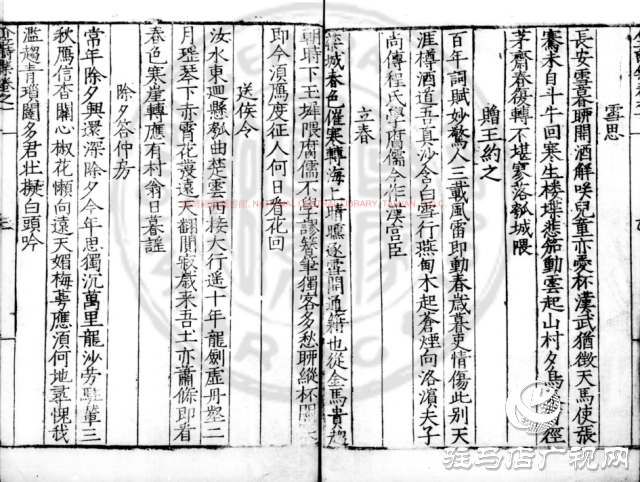 雪思
長安雪暮聊開酒解咲兒童亦愛杯漢武猶徵天馬使張
騫未自斗牛回寒生樓堞悲笳動雲起山村夕鳥
徑
茅齋春後轉不堪寥落孤城隈
贈王約之
百年詞賦妙驚人三載風雷即動春歲暮更情傷此别天
涯樽酒道吾真沙含白雪行燕甸木起蒼煙向洛濱夫子
尚傳程氏學腐儒今作漢宮臣
立春
城春色催寒轉海上晴曛逐雪開通籍也從金馬貴趨
朝時下玉墀隈腐儒不學謬簪筆獨客多愁聊縱杯聞
即今須鴈度征人何日看花回
送侯令
汝水東迴縣孤曲楚雲西接大行遥十年龍劍虛丹壑二
月瑶琴下赤霄花發遠天翻閴寂歲來吾土亦蕭條即看
春色寒崖轉應有村翁日暮謡
除夕答仲房
常年除夕興還深除夕今年思獨沉萬里龍沙労駐輦三
秋鴈信杳關心椒花懶向遠天媚梅萼應須何地尋愧我
濫趨青瑣闥多君壯擬白頭吟
卷之一
三
NATIONAL CENTRAL LIBRARY, TAIWAN, R.O.C.
驻马店广视网